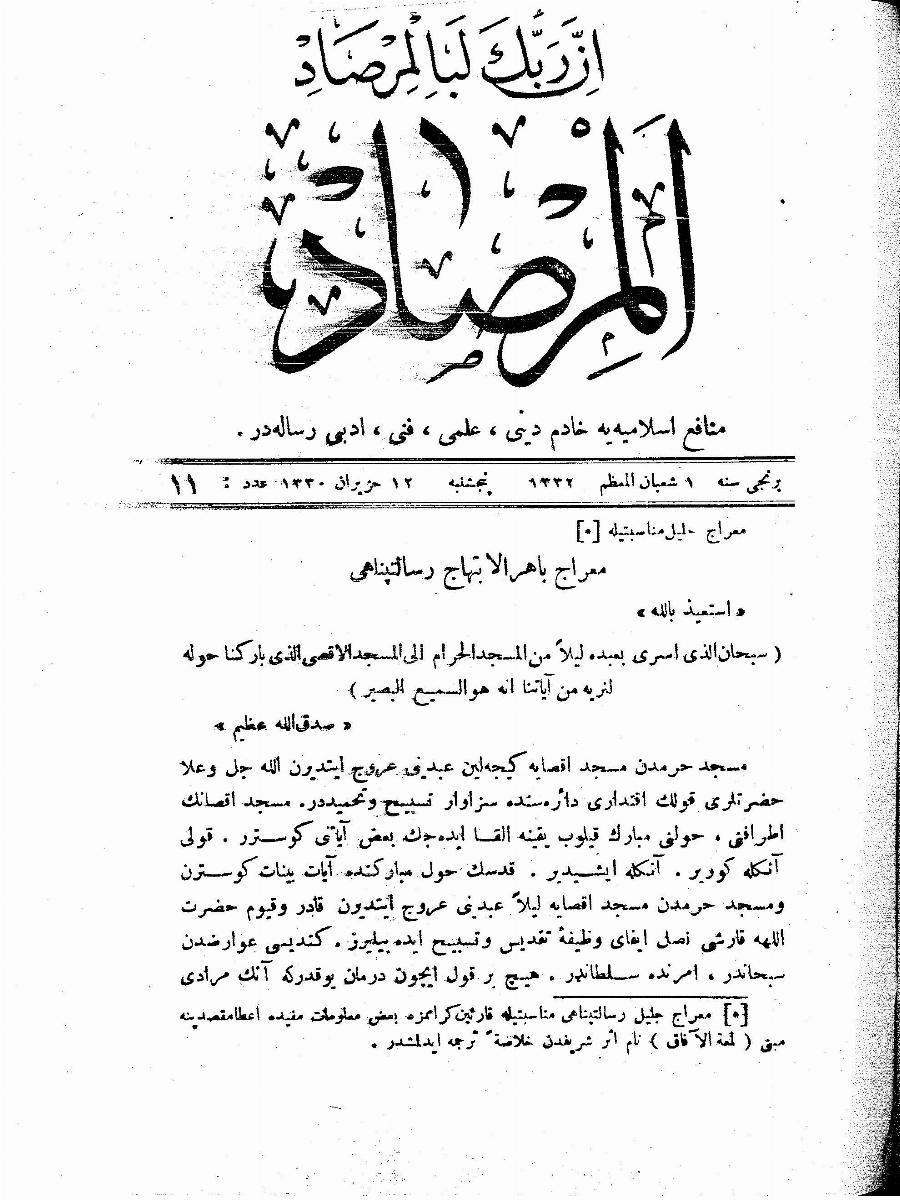 اِنَّ رَبَّكَ لَبِالْمِرْصَادِ
اَلْمِرْصَادْ
منافع اسلاميه‌يه خادم دينى ، علمى ، فنى ، ادبى رساله‌در .
برنجى سنه ١ شعبان المعظم ١٣٣٢ پنجشنبه ١٢ حزيران ١٣٣٠ عدد : ١١
معراج جليل مناسبتيله [*]
معراج باهرالابتهاج رسالتپناهى
« استعيذ بالله »
( سبحان الذى اسرى بعبده ليلاً من المسجد الحرام الى المسجد الاقصى الذى باركنا حوله
لنريه من آياتنا انه هو السميع البصير )
« صدق الله عظيم »
مسجد حرمدن مسجد اقصايه كيجه‌لين عبدينى عروج ايتديرن الله جل وعلا
حضرتلرى قولك اقتدارى دائره‌سنده سزاوار تسبيح وتحميددر. مسجد اقصانك
اطرافنى ، حولنى مبارك قيلوب يقينه القـا ايده‌جك بعض آياتى كوسترر . قولى
آنكله كورير . آنكله ايشـيدير . قدسك حول مباركنده آيات بينات كوسترن
ومسجد حرمدن مسجد اقصايه ليلاً عبدينى عروج ايتديرن قادر وقيوم حضرت
اللهه قارشى نصل ايفاى وظيفهٔ تقديس وتسبيح ايده‌بيليرز . كنديسى عوارضدن
سبحاندر ، امرنده سـلطاندر . هيـچ بر قول ايچون درمان يوقدركه آنك مرادى
[*] معراج جليل رسالتپناهى مناسبتيله قارئين كرامزه بعض معلومات مفيده اعطا مقصدينه
مبنى ( لمعة الآفاق ) نام اثر شريفدن خلاصةً ترجمه ايدلمشدر .